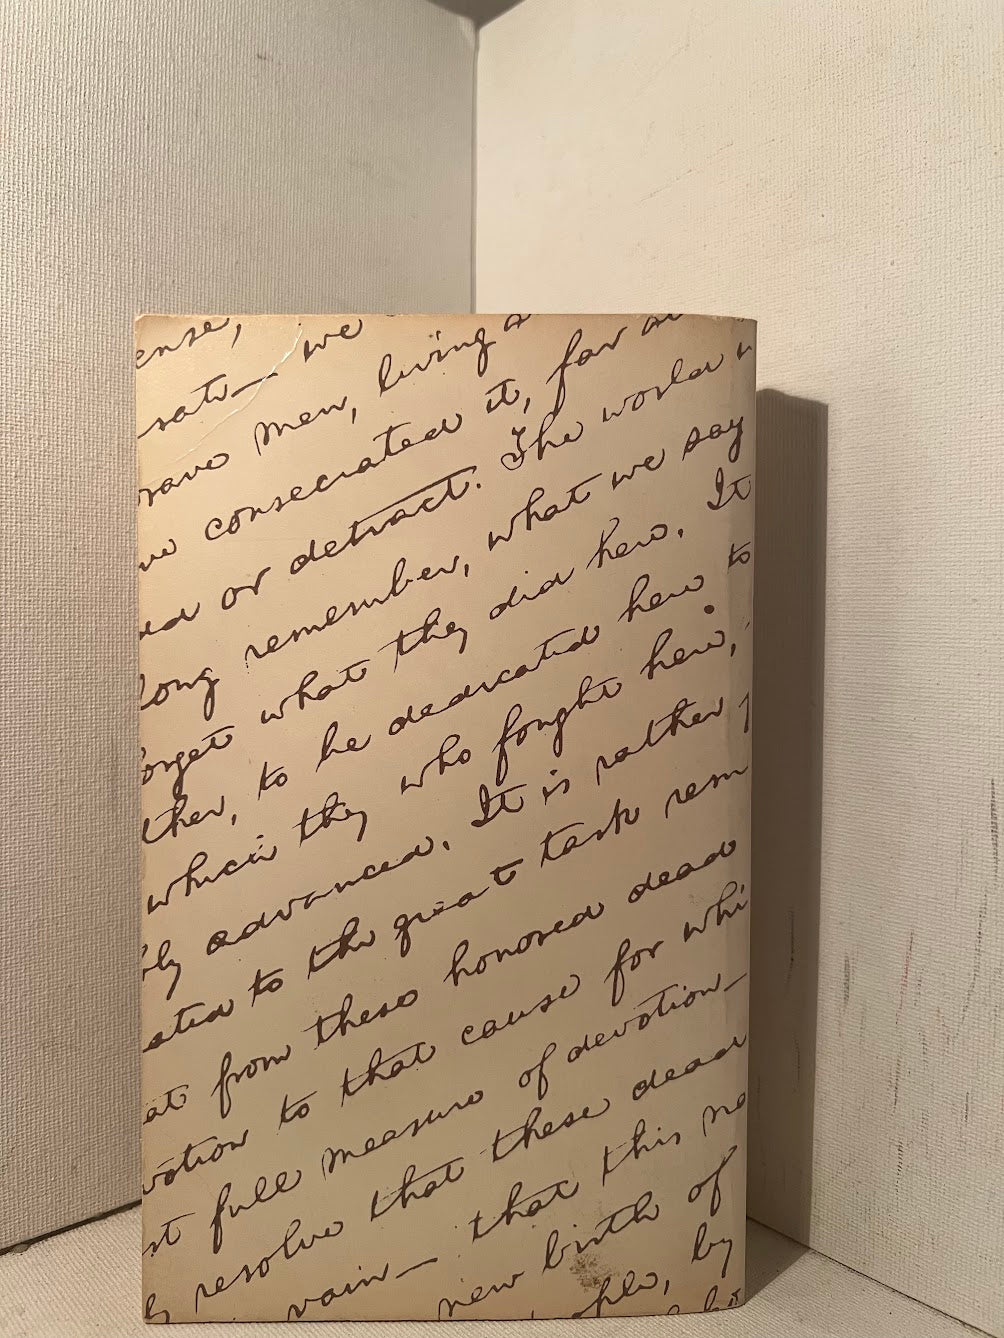 ense,
sate— we
rave men, living a
ve consecrated it, far a
dd or detract. The world n
long remember, what we say
orget what they did here. It
ther, to be dedicated here to
which they who fought here,
bly advanced. It is rather f
ated to the great task rem
at from these honored dead
votion to that cause for whi
st full measure of devotion—
ly resolve that these dead
vain— that this na
new birth of
ople, by